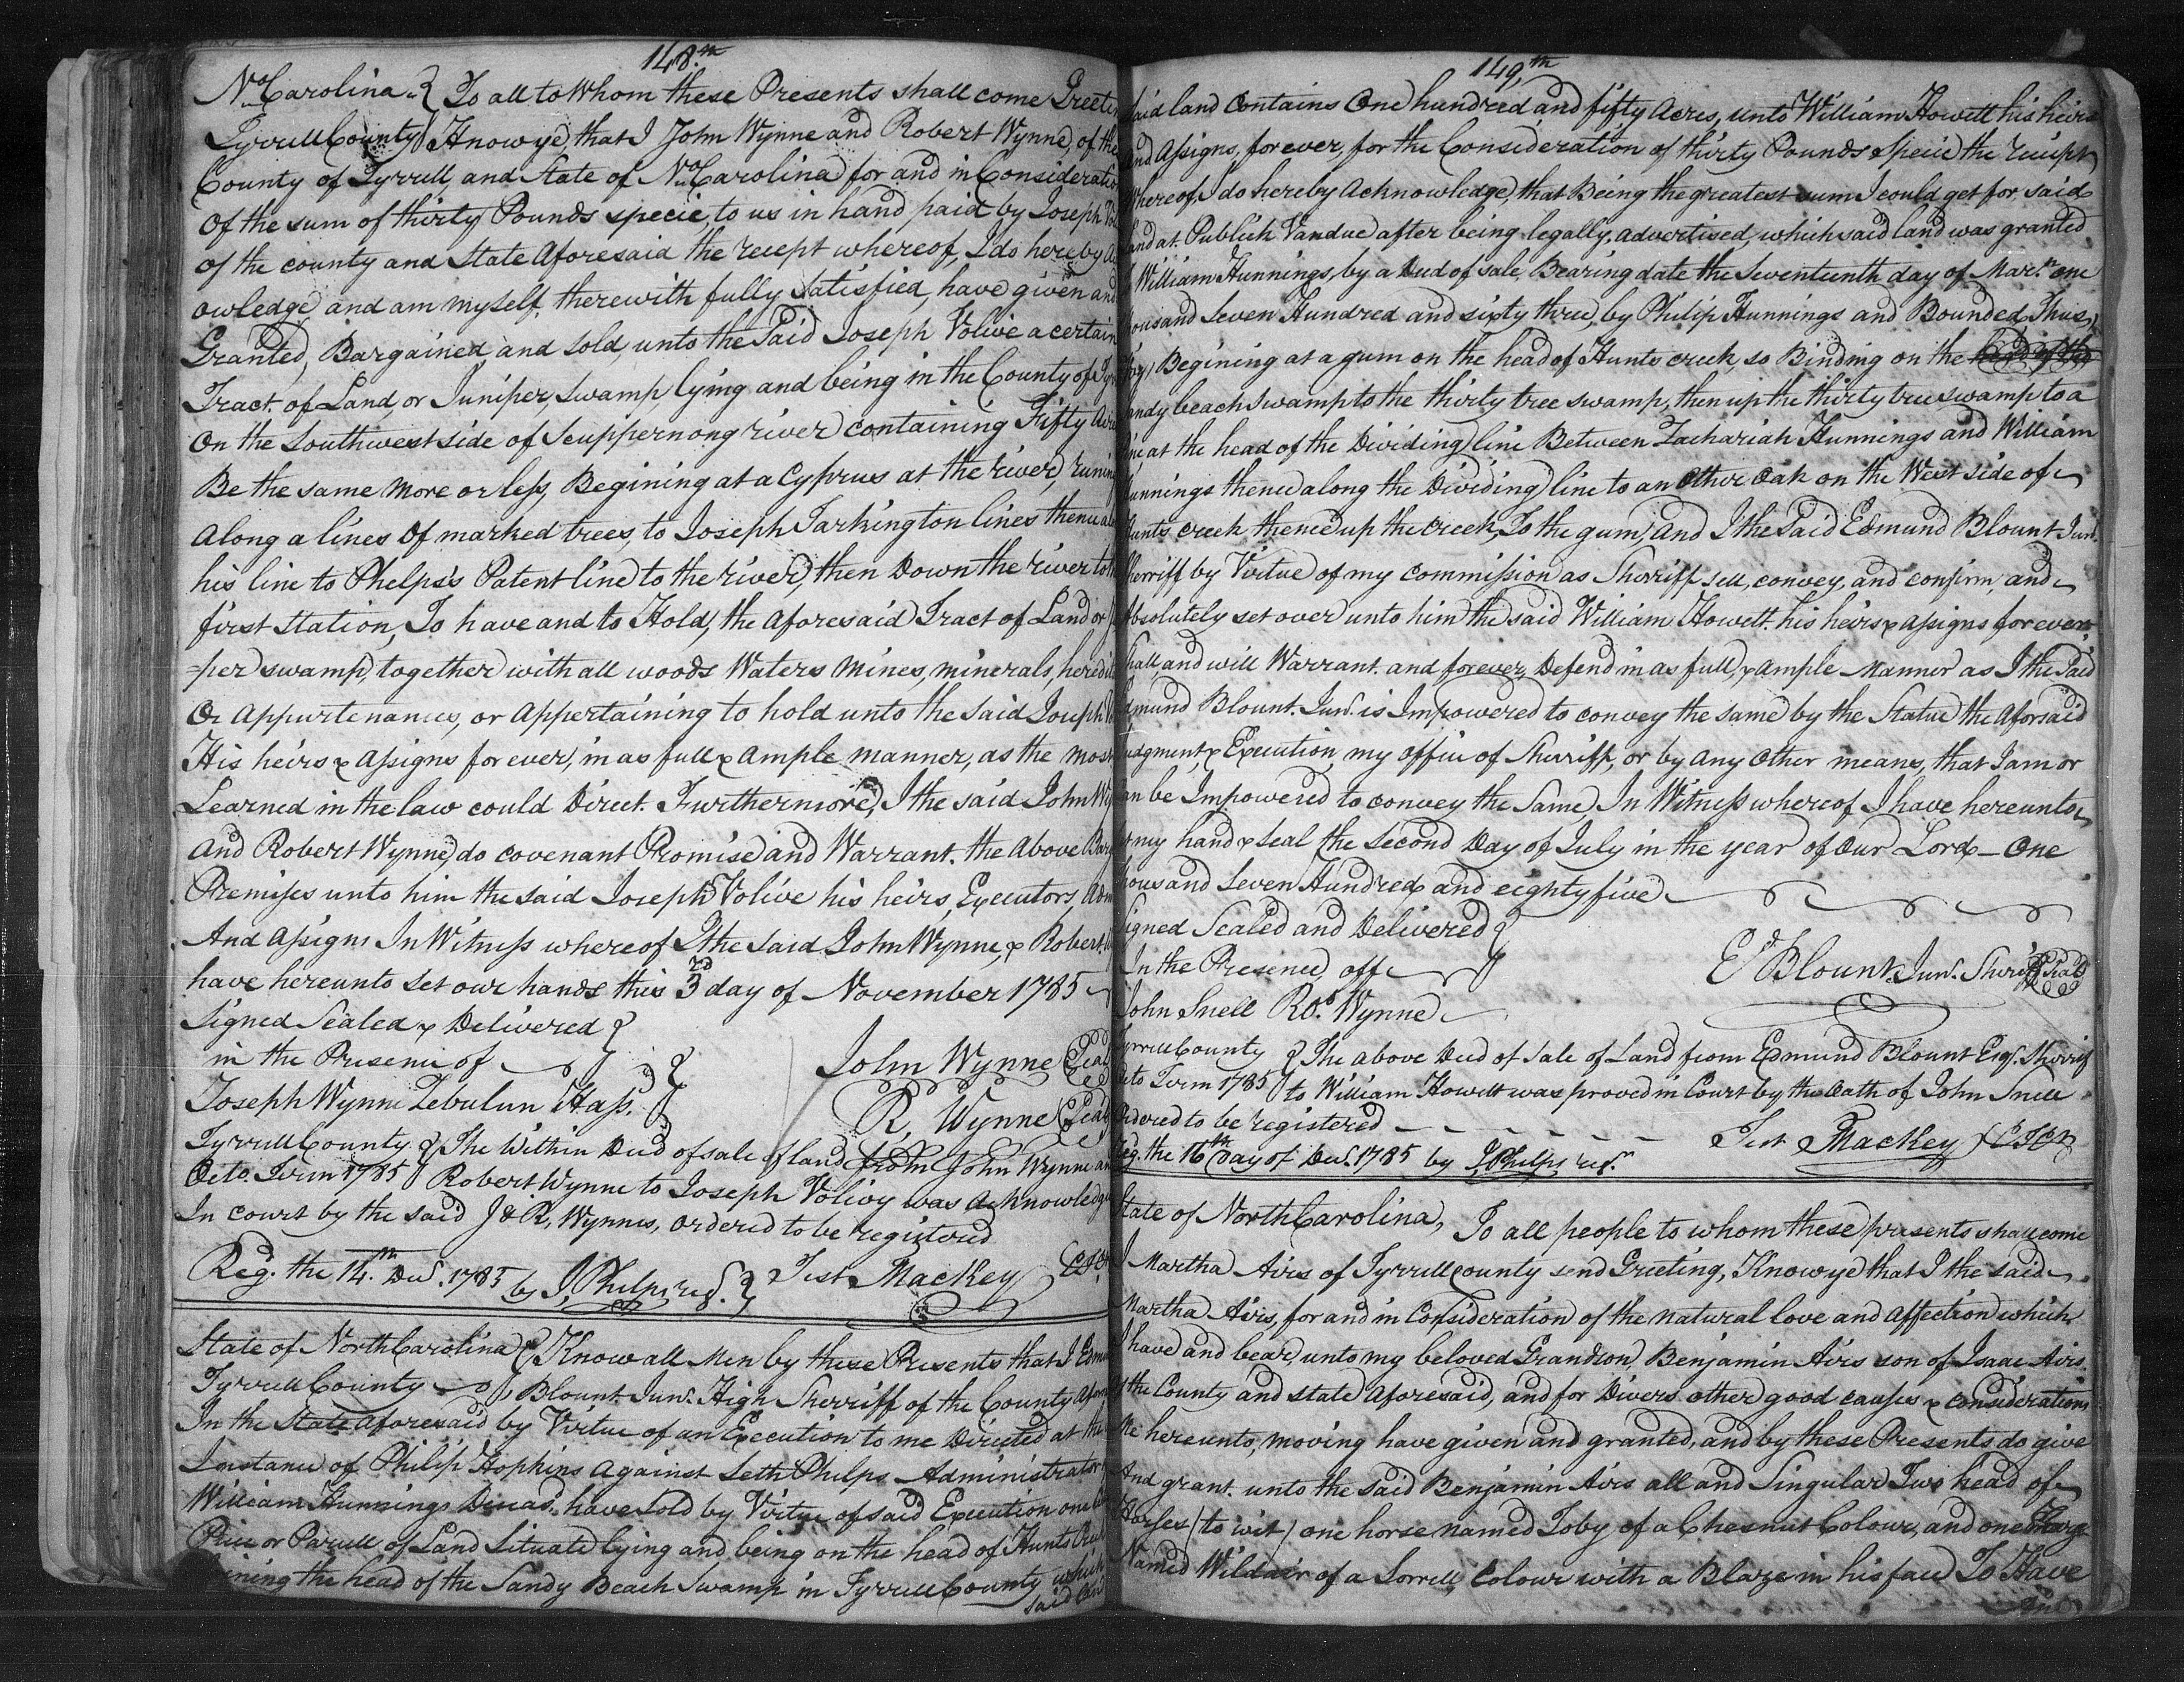 148.th
No Carolina } To all to Whom these Presents shall come Greetin
Tyrrell County } Know ye, that I John Wynne and Robert Wynne, of the
County of Tyrrell, and State of No Carolina for and in Consideratio
Of the sum of thirty Pounds specie, to us in hand paid by Joseph Vol
of the county and State Aforesaid the recept whereof, I do hereby A
owledge, and am myself, therewith fully Satisfied, have given and
Granted, Bargained, and Sold, unto the Said Joseph Volive a certain
Tract of Land, or Juniper, Swamp, lying and being in the County of Ty
On the Southwest side of Scuppernong river containing Fifty Acre
Be the same more or less, Begining at a Cyprus at the river, runing
Along a lines Of marked trees, to Joseph Tarkington lines thence al
his line to Phelps's Patent line to the river, then Down the river to th
first Station, To have and to Hold, the Aforesaid Tract of Land or
=per swamp, together with all woods Waters Mines, minerals, heredit
Or Appurtenances, or Appertaining to hold unto the Said Joseph V
His heirs & Assigns for ever, in as full & Ample manner, as the most
Learned in the law could Direct. Furthermore, I the said John Wy
And Robert Wynne do covenant Promise and Warrant. the Above Bar
Premises unto him the said Joseph Volive his heirs, Executors, Adm
And Assigns In Witness whereof I the Said John Wynne, & Robert
have hereunto Set our hands this 3rd day of November 1785
Signed Sealed & Delivered }
in the Presence of }
John Wynne (Seal
Joseph Wynne Zebulun Hass. }
R. Wynne (Seal
Tyrrell County } The Within Deed of sale of land from John Wynne an
Octo. Term 1785 } Robert Wynne to Joseph Volivy was Acknowledge
In Court by the Said J & R, Wynnes, Ordered to be registered
Reg. the 14.th Decr. 1785 by J, Phelps reg. } Test Mackey
State of North Carolina } Know all Men by these Presents that I Edmu
Tyrrell County } Blount Junr. High Sherriff of the County Afore
In the State aforesaid by Virtue of an Execution to me Directed at the
Instance of Philip Hopkins Against Seth Phelps Administrator
William Hunnings Deceasd. have Sold by Virtue of said Execution one
Piece or Parcell of Land Situate lying and being on the head of Hunts Cree
ining the head of the Sandy Beach Swamp in Tyrrell County which
said
149,th
Said land Contains One hundred and fifty Acres, unto William Howett his heirs
And Assigns, for ever, for the Consideration of thirty Pounds Specie the reciept
Whereof, I do hereby Acknowledge, that Being the greatest sum I could get for said
Land at Publick Vandue after being legally, advertised, which said land was granted
William Hunnings, by a Deed of sale, Bearing date the Seventeenth day of Marh. one
housand Seven Hundred and sixty three, by Philip Hunnings and Bounded, Thus,
Begining at a gum on the head of Hunts creek, so Binding on the head of the
andy beach Swamp to the thirty tree swamp, then up the thirty tree swamp to a
ine at the head of the Dividing line Between Zachariah Hunnings and William
unnings thence along the Dividing line to an Other Oak on the West side of
Hunts creek thence up the creek, To the gum, And I the Said Edmund Blount Junr.
herriff by Virtue of my commission as Sherriff sell, convey, and confirm, and
Absolutely set over unto him the said William Howett. his heirs & Assigns for ever
hall, and will Warrant. and forever, Defend in as full, & ample Manner as I the Said
dmund Blount. Junr. is Impowered to convey the same by the Statue the Aforsaid
udgment, & Execution, my office of Sherriff, or by Any Other means, that I am or
an be Impowered to convey the Same, In Witness whereof I have hereunto
my hand & Seal the Second Day of July in the year of Our Lord One
housand Seven Hundred and eighty five
Signed Sealed and Delivered }
In the Presence off
Ed Blount. Junr. Sherif (Seal)
John Snell Ro. Wynne
Tyrrell County } The above Deed of Sale of Land from Edmund Blount Esqr. Sherrif
Octo Term 1785 } to William Howett was proved in Court by the Oath of John Snell
Ordered to be registered
Test Mackey
Reg. the 16th Day of Decr. 1785 by J Phelps regr.
State of North Carolina, To all people to whom these presents shall come
I Martha Airs of Tyrrell county send Greeting, Know ye that I the said
Martha Airs, for and in Consideration of the natural love and Affection which
I have and bear, unto my beloved Grandson, Benjamin Airs son of Isaac Airs
Of the County and State Aforesaid, and for Divers other good causes & considerations
Me hereunto, moving have given and granted, and by these Presents do give
And grant. unto the Said Benjamin Airs all and Singular Two head of
Horses (to wit) one horse named Toby of a Chesnut Colour, and one Horse
Named Wildair of a Sorrell, Colour with a Blaze in his face To Have